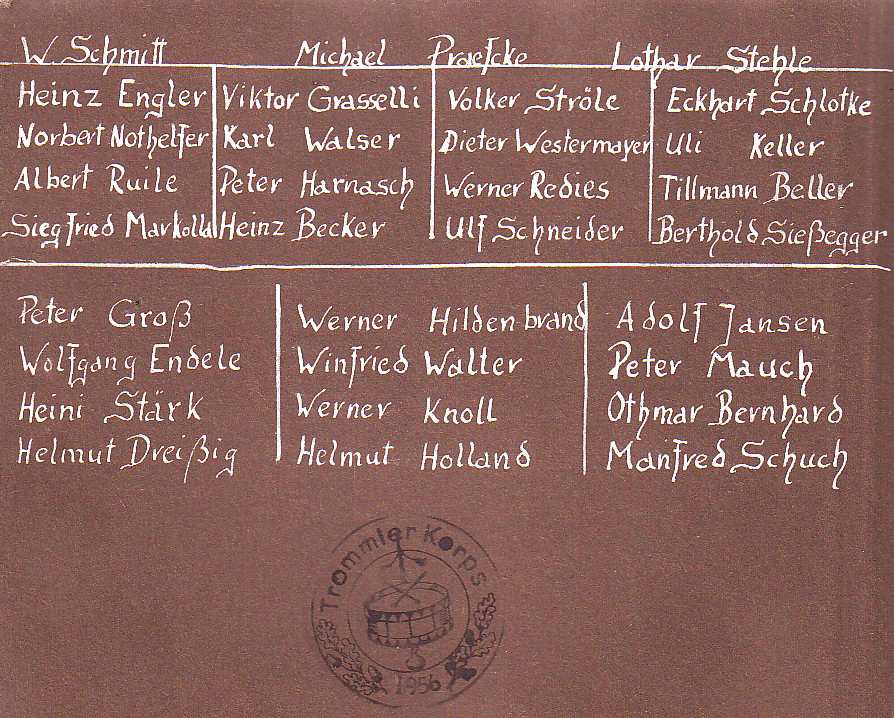 W. Schmitt Michael Praefcke Lothar Stehle
Heinz Engler Viktor Grasselli Volker Ströle Eckhart Schlotke
Norbert Nothelfer Karl Walser Dieter Westermayer Uli Keller
Albert Ruile Peter Harnasch Werner Redies Tillmann Beller
Siegfried Markolla Heinz Becker Ulf Schneider Berthold Sießegger
Peter Groß Werner Hildenbrand Adolf Jansen
Wolfgang Endele Winfried Walter Peter Mauch
Heini Stärk Werner Knoll Othmar Bernhard
Helmut Dreißig Helmut Holland Manfred Schuch
Trommler Korps
1956